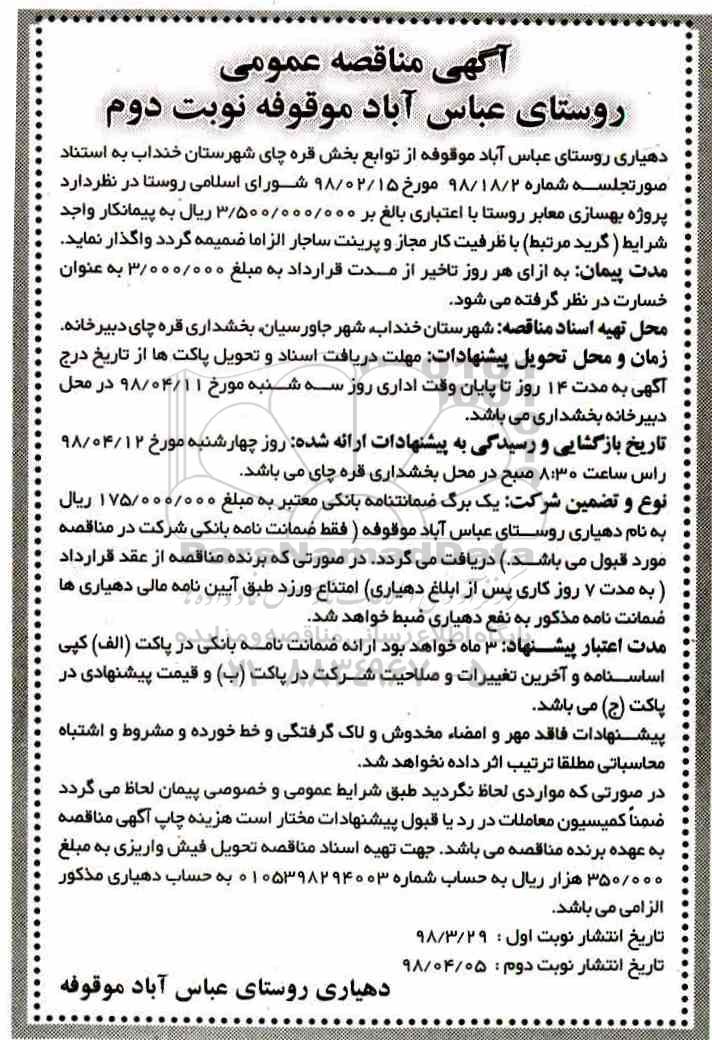 آگهی مناقصه عمومی
روستای عباس آباد موقوفه نوبت دوم
دهیاری روستای عباس آباد موقوفه از توابع بخش قره چای شهرستان خنداب به استناد
صورتجلسه شماره ۹۸/۱۸/۲ مورخ ۹۸/۰۲/۱۵ شورای اسلامی روستا در نظردارد
پروژه بهسازی معابر روستا با اعتباری بالغ بر ۳/۵۰۰/۰۰۰/۰۰۰ ریال به پیمانکار واجد
شرایط ( گرید مرتبط) با ظرفیت کار مجاز و پرینت ساجار الزاما ضمیمه گردد واگذار نماید.
مدت پیمان: به ازای هر روز تاخیر از مدت قرارداد به مبلغ ۳/۰۰۰/۰۰۰ به عنوان
خسارت در نظر گرفته می شود.
محل تهیه اسناد مناقصه: شهرستان خنداب، شهر جاورسیان، بخشداری قره چای دبیرخانه.
زمان و محل تحویل پیشنهادات: مهلت دریافت اسناد و تحویل پاکت ها از تاریخ درج
آگهی به مدت ۱۴ روز تا پایان وقت اداری روز سه شنبه مورخ ۹۸/۰۴/۱۱ در محل
دبیرخانه بخشداری می باشد.
تاریخ بازگشایی و رسیدگی به پیشنهادات ارائه شده: روز چهارشنبه مورخ ۹۸/۰۴/۱۲
راس ساعت ۸:۳۰ صبح در محل بخشداری قره چای می باشد.
نوع و تضمین شرکت: یک برگ ضمانتنامه بانکی معتبر به مبلغ ۱۷۵/۰۰۰/۰۰۰ ریال
به نام دهیاری روستای عباس آباد موقوفه ( فقط ضمانت نامه بانکی شرکت در مناقصه
مورد قبول می باشد.) دریافت می گردد. در صورتی که برنده مناقصه از عقد قرارداد
( به مدت ۷ روز کاری پس از ابلاغ دهیاری) امتناع ورزد طبق آیین نامه مالی دهیاری ها
ضمانت نامه مذکور به نفع دهیاری ضبط خواهد شد.
پایگاه اطلاع رسانی مناقصه و مزایده
مدت اعتبار پیشنهاد: ۳ ماه خواهد بود ارائه ضمانت نامه بانکی در پاکت (الف) کپی
اساسنامه و آخرین تغییرات و صلاحیت شرکت در پاکت (ب) و قیمت پیشنهادی در
پاکت (ج) می باشد.
پیشنهادات فاقد مهر و امضاء مخدوش و لاک گرفتگی و خط خورده و مشروط و اشتباه
محاسباتی مطلقا ترتیب اثر داده نخواهد شد.
در صورتی که مواردی لحاظ نگردید طبق شرایط عمومی و خصوصی پیمان لحاظ می گردد
ضمناً کمیسیون معاملات در رد یا قبول پیشنهادات مختار است هزینه چاپ آگهی مناقصه
به عهده برنده مناقصه می باشد. جهت تهیه اسناد مناقصه تحویل فیش واریزی به مبلغ
۳۵۰/۰۰۰ هزار ریال به حساب شماره ۰۱۰۵۳۹۸۲۹۴۰۰۳ به حساب دهیاری مذکور
الزامی می باشد.
تاریخ انتشار نوبت اول : ۹۸/۳/۲۹
تاریخ انتشار نوبت دوم : ۹۸/۰۴/۰۵
دهیاری روستای عباس آباد موقوفه